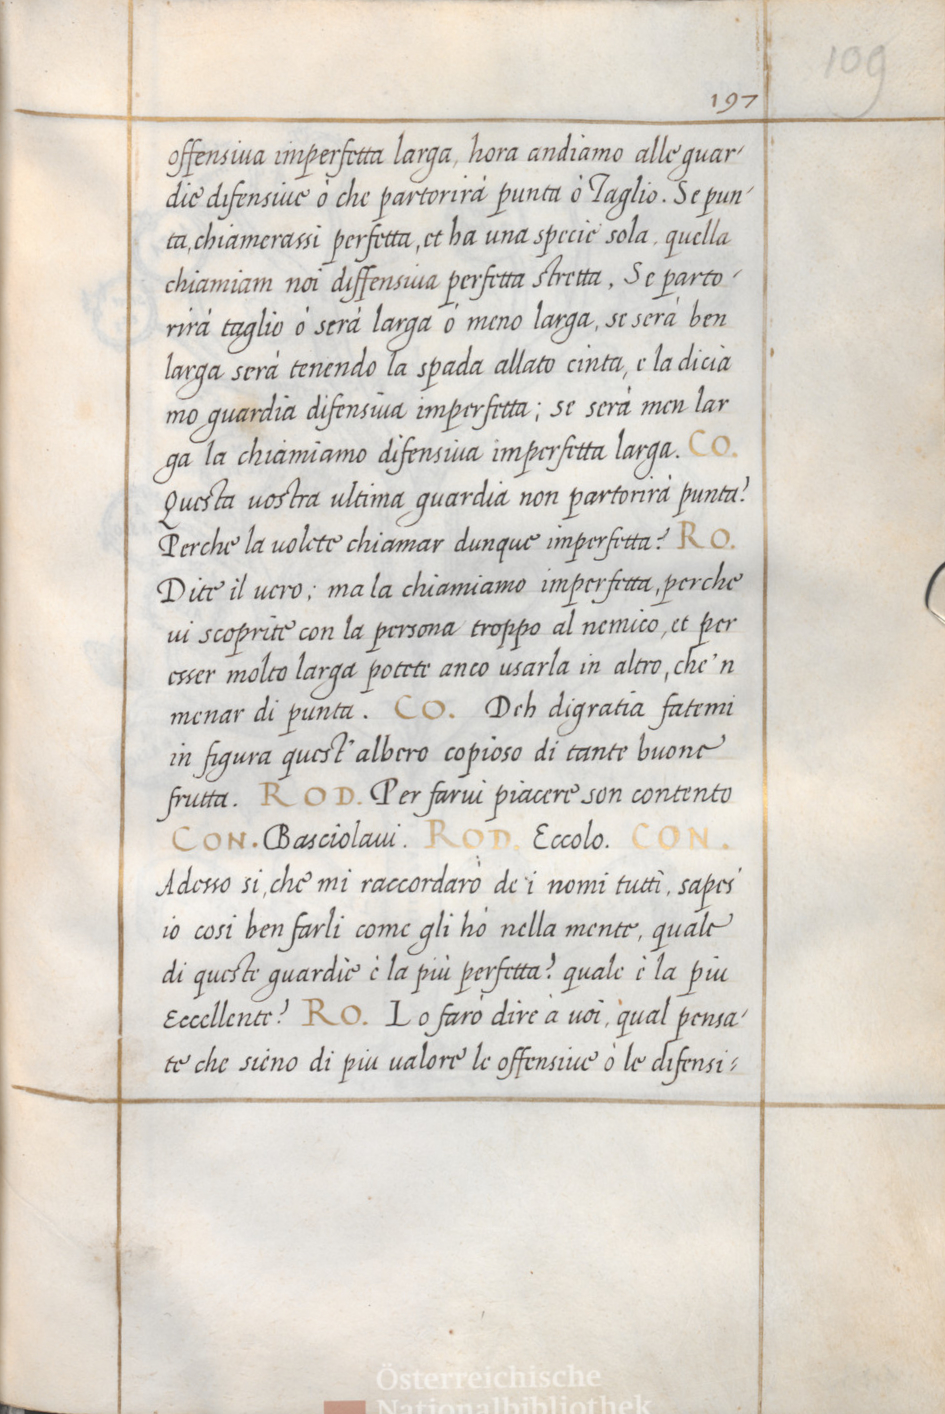 109
197
offensiua imperfetta larga, hora andiamo alle guar-
die difensiue ò che partorirà punta ò Taglio. Se pun-
ta, chiamerassi perfetta, et ha una specie sola, quella
chiamiam noi diffensiua perfetta stretta, Se parto-
rirà taglio ò serà larga ò meno larga, se serà ben
larga serà tenendo la spada allato cinta, e la dicia
mo guardia difensiua imperfetta; se serà men lar
ga la chiamiamo difensiua imperfetta larga. CO.
Questa uostra ultima guardia non partorirà punta?
Perche la uolete chiamar dunque imperfetta? RO.
Dite il uero; ma la chiamiamo imperfetta, perche
ui scoprite con la persona troppo al nemico, et per
esser molto larga potete anco usarla in altro, che'n
menar di punta. CO. Deh digratia fatemi
in figura quest'albero copioso di tante buone
frutta. ROD. Per farui piacere son contento
CON. Basciolaui. ROD. Eccolo. CON.
Adesso si, che mi raccordarò de i nomi tutti, sapes'
io cosi ben farli come gli hò nella mente, quale
di queste guardie è la più perfetta? quale è la piu
Eccellente? RO. Lo farò dire à uoi, qual pensa-
te che sieno di piu ualore le offensiue ò le difensi-
Österreichische
Nationalbibliothek